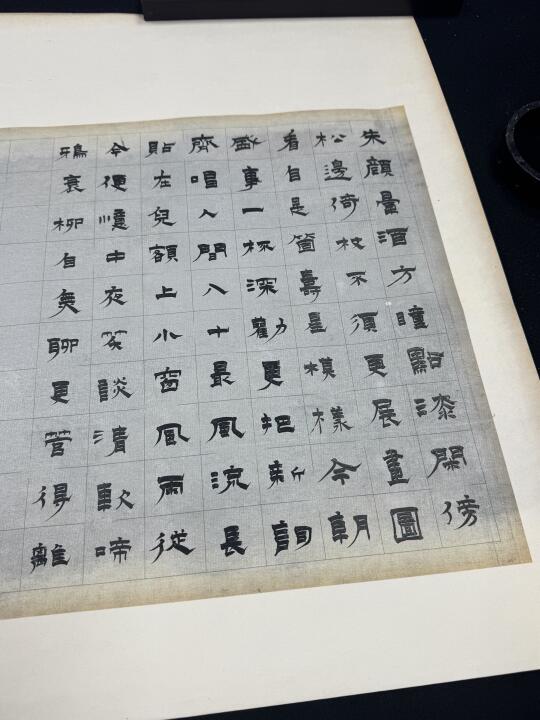 朱顏暈酒方瞳點漆閑傍
松邊倚杖不須更展畫圖
看自是箇壽星模樣今朝
盛事一杯深勸更把新詞
齊唱人間八十最風流長
貼在兒額上小窗風雨從
今便憶中夜笑談清軟啼
鴉衰柳自無聊更管得離